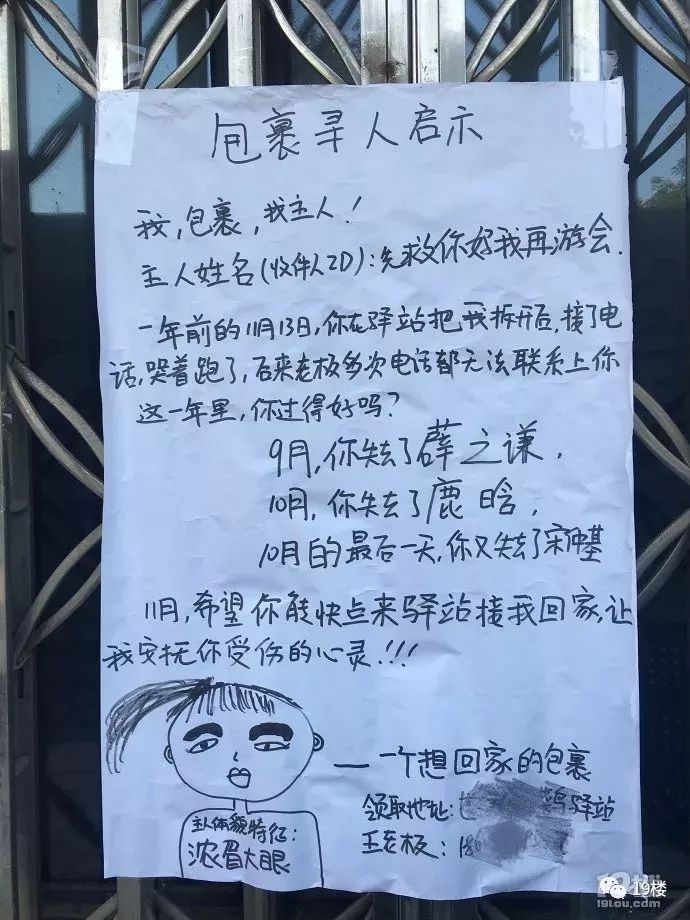 包裹寻人启示
我,包裹,找主人!
主人姓名(收件人ID):先救你好我再游会.
一年前的11月13日,你在驿站把我拆开后,接了电
话,哭着跑了,后来老板多次电话都无法联系上你
这一年里,你过得好吗?
9月,你失去了薛之谦,
10月,你失去了鹿晗,
10月的最后一天,你又失去了宋仲基
11月,希望你能快点来驿站接我回家,让
我安抚你受伤的心灵!!!
——一个想回家的包裹
领取地址: 驿站
王老板: 18
主人体貌特征:
浓眉大眼
19楼
19lou.com